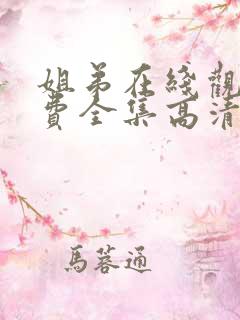 姐弟在綫觀
費全集高清
馬蓉通